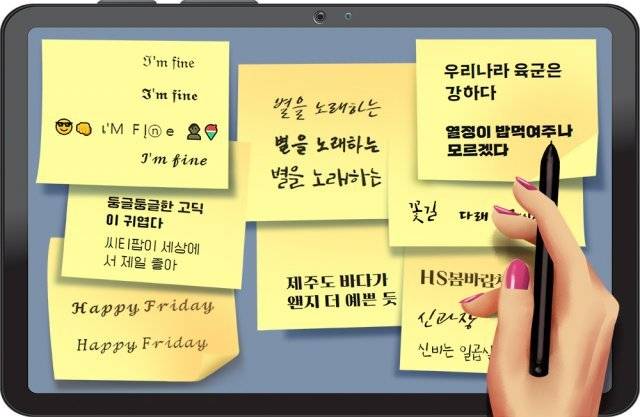 I'm fine
I'm fine
I'M FIne
I'm fine
별을 노래하는
별을 노래하는
별을 노래하는
우리나라 육군은
강하다
열정이 밥먹여주나
모르겠다
둥글둥글한 고딕
이 귀엽다
씨티팝이 세상에
서 제일 좋아
꽃길 다래
Happy Friday
Happy Friday
제주도 바다가
왠지 더 예쁜 듯
HS봄바람체
신과장
신비는 일곱살